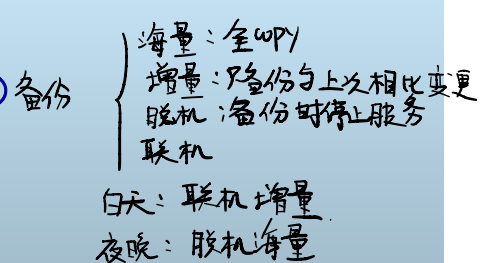 备份
海量：全copy
增量：只备份与上次相比变更
脱机：备份时停止服务
联机
白天：联机增量
夜晚：脱机海量